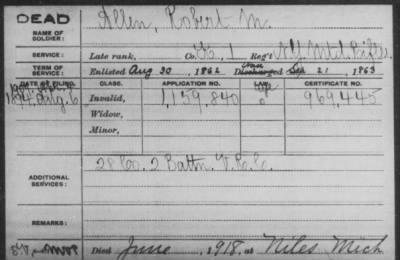 DEAD
NAME OF SOLDIER:
Allen, Robert M.
SERVICE:
Late rank, Co. Reg't
TERM OF SERVICE:
Enlisted Aug 30, 1862 Discharged Sep 21, 1863
DATE OF FILING. CLASS. APPLICATION NO. LAW. CERTIFICATE NO.
Aug. 6 Invalid, 1,159,840 969,445
Widow,
Minor,
ADDITIONAL SERVICES:
28 Co. 2 Battn. V.R.C.
REMARKS:
Died June, 1918, at Niles Mich